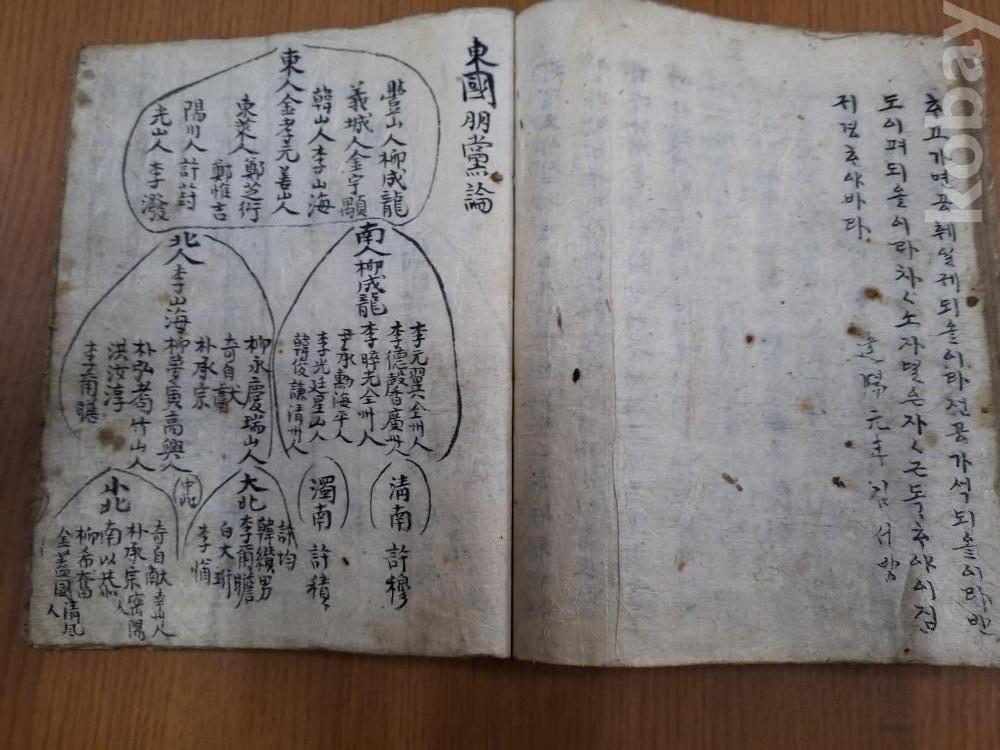 초고가면공훼실제되올이라전공가석되올이라반
도이며되올이라차〱소자멸은자〱근독후야이집
저집후야바다
金 서방
東國朋黨論
豊山人柳成龍
義城人金宇顒
韓山人李山海
東人金孝元善山人
東萊人鄭芝衍
鄭惟吉
陽川人許葑
光山人李潑
南人柳成龍
李元翼全州人
李德馨廣州人
李睟光全州人
尹承勳海平人
李光廷星山人
韓俊謙清州人
北人李山海
柳永慶瑞山人
奇自獻
朴承宗
柳夢寅高興人
朴弘耈竹山人
洪汝淳
李爾瞻
清南 許穆
濁南 許積
大北
許均
韓纘男
李爾瞻
白大珩
中北
小北
奇自獻幸州人
朴承宗密陽人
南以恭
柳希奮
金藎國清風人
kobay